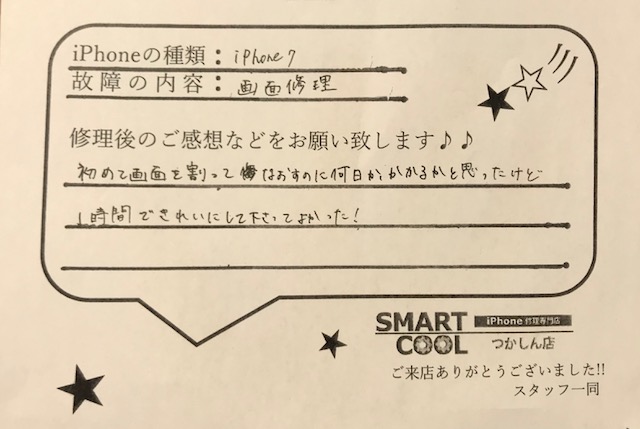 iPhoneの種類：iPhone7
故障の内容：画面修理
修理後のご感想などをお願い致します♪♪
初めて画面を割って なおすのに何日か かかるかと思ったけど
1時間できれいにして下さってよかった！
SMART COOL
iPhone 修理専門店
つかしん店
ご来店ありがとうございました!!
スタッフ一同